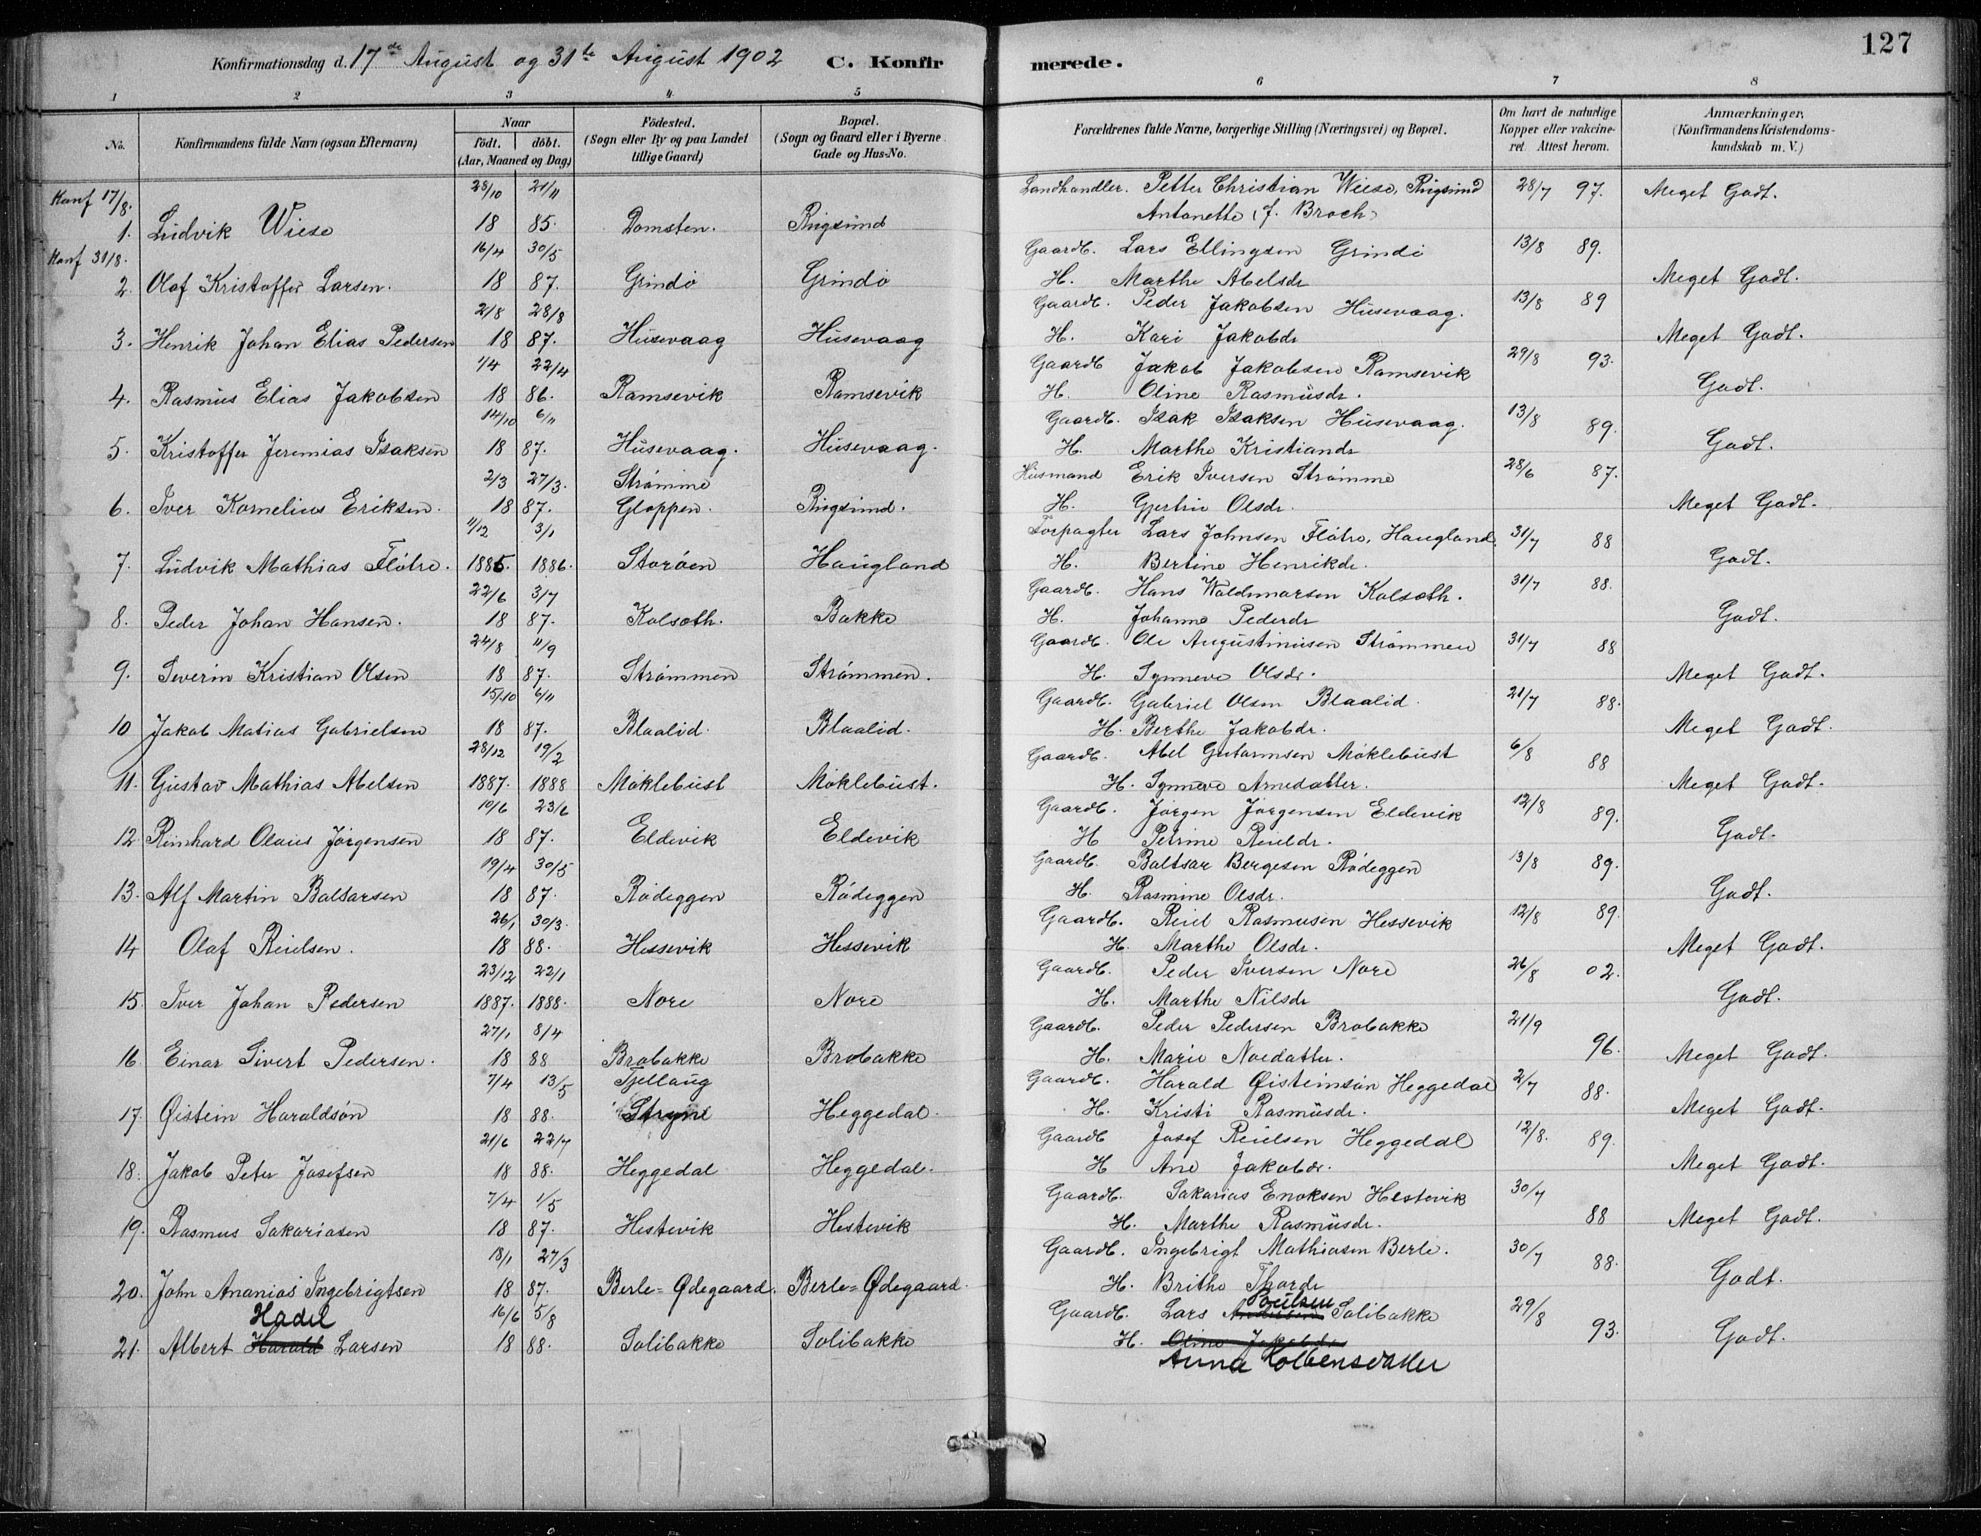 127
Konfirmationsdag d. 17de August og 31te August 1902 C. Konfirmerede.
1 2 3 4 5 6 7 8
No. Konfirmandens fulde Navn (ogsaa Efternavn) Naar født. døbt. (Aar, Maaned og Dag) Fødested. (Sogn eller By og paa Landet tillige Gaard) Bopæl. (Sogn og Gaard eller i Byerne Gade og Hus-No. Forældrenes fulde Navne, borgerlige Stilling (Næringsvei) og Bopæl. Om havt de naturlige Kopper eller vakcineret. Attest herom. Anmærkninger. (Konfirmandens Kristendomskundskab m. V.)
Konf 17/8. 28/10 21/11 Landhandler. Petter Christian Wiese, Rugsund 28/7 97. Meget Godt.
1. Ludvik Wiese 18 85. Domsten. Rugsund Antonette (f. Broch)
Konf 31/8. 16/4 30/5 Gaardb. Lars Ellingsen Grindø 13/8 89.
2. Olaf Kristoffer Larsen. 18 87. Grindø Grindø H. Marthe Abelsdr Meget Godt.
2/8 28/8 Gaardb. Peder Jakobsen Husevaag. 13/8 89
3. Henrik Johan Elias Pedersen 18 87. Husevaag Husevaag H. Kari Jakobdr Meget Godt.
1/4 22/4 Gaardb Jakob Jakobsen Ramsevik 29/8 93.
4. Rasmus Elias Jakobsen 18 86. Ramsevik Ramsevik H. Oline Rasmusdr. Godt.
14/10 6/11 Gaardb. Isak Isaksen Husevaag. 13/8 89.
5. Kristoffer Jeremias Isaksen 18 87. Husevaag. Husevaag. H. Marthe Kristiandr Godt.
2/3 27/3. Strømme Husmand Erik Iversen Strømme 28/6 87.
6. Iver Kornelius Eriksen. 18 87. Gloppen. Rugsund. H. Gjertrue Olsdr. Meget Godt.
11/12 3/1 Forpagter Lars Johnsen Fløtre, Haugland. 31/7 88
7. Ludvik Mathias Fløtre. 1885. 1886. Storøen Haugland H. Bertine Henrikdr. Godt.
22/6 3/7 Gaardb. Hans Waldemarsen Kolsæth. 31/7 88.
8. Peder Johan Hansen. 18 87. Kolsæth. Bakke H. Johanne Pederdr Godt.
24/8 11/9 Gaardb. Ole Augustinusen Strømmen 31/7 88
9. Severin Kristian Olsen 18 87. Strømmen Strømmen. H. Synneve Olsdr. Meget Godt.
15/10 6/11 Gaardb. Gabriel Olsen Blaalid. 21/7 88.
10 Jakob Matias Gabrielsen 18 87. Blaalid. Blaalid. H. Berthe Jakobdr. Meget Godt.
28/12 19/2 Gaardb. Abel Gutormsen Møklebust 6/8 88
11. Gustav Mathias Abelsen 1887. 1888 Møklebust Møklebust. H. Synneve Arnedatter. Meget Godt.
10/6 23/6 Gaardb. Jørgen Jørgensen Eldevik 12/8 89.
12 Reinhard Olaus Jørgensen 18 87. Eldevik Eldevik H Petrine Reieldr. Godt.
19/4 30/5 Gaardb. Baltsar Bergesen Rødeggen 13/8 89.
13. Alf Martin Baltsarsen 18 87. Rødeggen Rødeggen H. Rasmine Olsdr. Godt.
26/1 30/3. Gaardb. Reiel Rasmusen Hessevik 12/8 89.
14 Olaf Reielsen. 18 88. Hessevik Hessevik H. Marthe Olsdr. Meget Godt.
23/12 22/1 Gaardb. Peder Iversen Nore 26/8 02.
15. Iver Johan Pedersen 1887. 1888. Nore Nore H. Marthe Nilsdr Godt.
27/1 8/4 Gaardb. Peder Pedersen Brobakke 21/9
16. Einar Sivert Pedersen. 18 88 Brobakke Brobakke H. Marie Noedatter. 96. Meget Godt.
7/4 13/5 Tjellaug Gaardb. Harald Øisteinsøn Heggedal 2/7 88.
17. Øistein Haraldsøn 18 88. Stryne Heggedal. H. Kristi Rasmusdr. Meget Godt.
21/6 22/7 Gaardb Josef Reielsen Heggedal 12/8. 89.
18. Jakob Peter Josefsen 18 88. Heggedal Heggedal. H Ane Jakobdr. Meget Godt.
7/4 1/5 Gaardb. Sakarias Enoksen Hestevik 30/7
19. Rasmus Sakariasen 18 87. Hestevik Hestevik H. Marthe Rasmusdr. 88 Meget Godt.
18/1 27/3 Gaardb. Ingebrigt Mathiasen Berle. 30/7 88.
20. John Ananias Ingebrigtsen 18 87. Berle=Ødegaard. Berle=Ødegaard. H. Brithe Thordr Godt.
Hadel 16/6 5/8 Gaardb. Lars Andersen Poulsen Solibakke 29/8
21. Albert Harald Larsen 18 88. Solibakke Solibakke H. Oline Jakobdr 93. Godt.
Anna Kolbensdatter